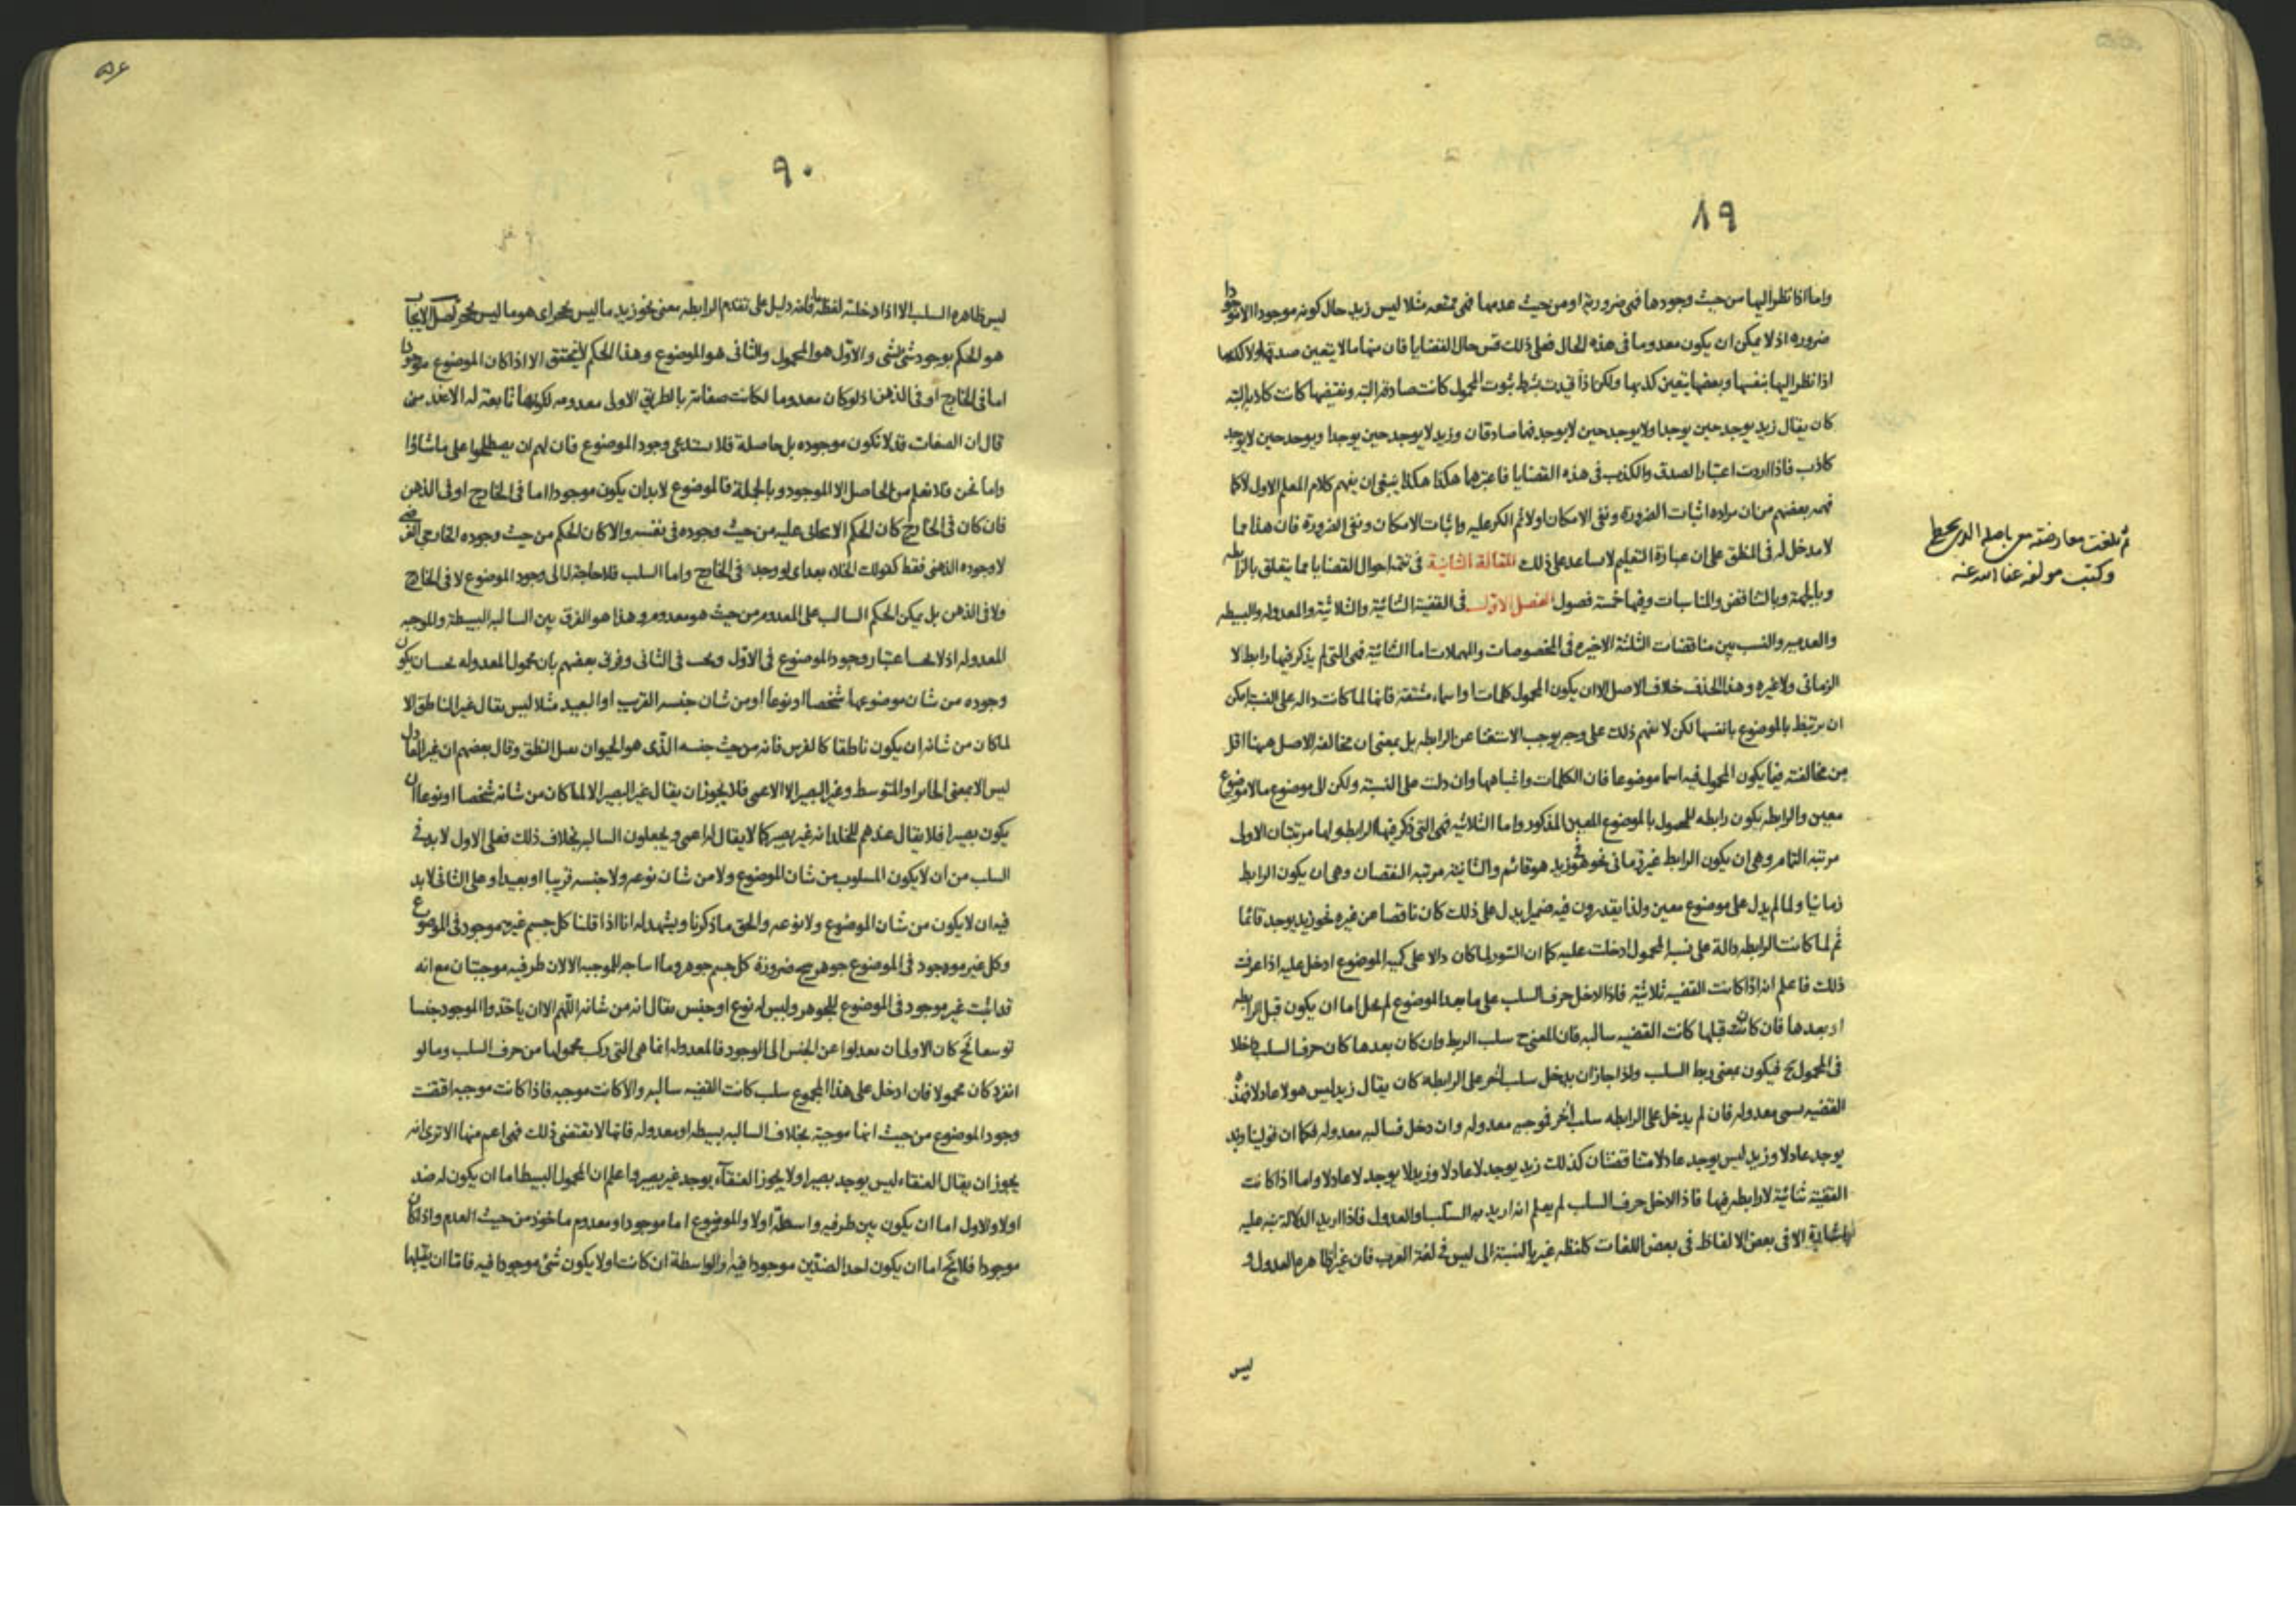 ٨٩
واما اذا نظر اليها من حيث وجودها فهى ضرورية او من حيث عدمها فهى ممتنعه مثلا ليس زيد حال كونه موجودا الا موجودا
ضرورة اذ لا يمكن ان يكون معدوما فى هذه الحال فعلى ذلك قس حال القضايا فان منها ما لا يتعين صدقها ولا كذبها
اذا نظر اليها بنفسها وبعضها يتعين كذبها ولكن اذا قيدت بشرط ثبوت المحمول كانت صادقة البته ونقيضها كانت كاذبة البته
كان يقال زيد يوجد حين يوجد او لا يوجد حين لا يوجد فهما صادقان وزيد لا يوجد حين يوجد او يوجد حين لا يوجد
كاذب فاذا اردت اعتبار الصدق والكذب فى هذه القضايا فاعتبرها هكذا هكذا ينبغى ان يفهم كلام المعلم الاول لا كما
فهمه بعضهم من ان مراده اثبات الضرورة ونفى الامكان اولا ثم الكر عليه واثبات الامكان ونفى الضرورة فان هذا مما
لا مدخل له فى المنطق على ان عبارة التعليم لا يساعد على ذلك المقالة الثانية فى تتمة احوال القضايا مما يتعلق بالرابطه
وبالجهة وبالتناقض والمناسبات وفيها خمسة فصول الفصل الاول فى القضية الثنائية والثلاثية والمعدوله والبسيطه
والعدميه والنسب بين مناقضات الثلثة الاخيره فى المخصوصات والمهملات اما الثنائية فهى التى لم يذكر فيها رابط لا
الزمانى ولا غيره وهذا الحذف خلاف الاصل الا ان يكون المحمول كلمات او اسماء مشتقه فانها لما كانت داله على النسبة امكن
ان يرتبط بالموضوع بانفسها لكن لا نفهم ذلك على وجه يوجب الاستغنا عن الرابطه بل بمعنى ان مخالفة الاصل ههنا اقل
من مخالفته فيما يكون المحمول فيه اسما موضوعا فان الكلمات واشباهها وان دلت على النسبة ولكن الى موضوع ما لا موضوع
معين والرابطه يكون رابطه للمحمول بالموضوع المعين المذكور واما الثلاثيه فهى التى ذكر فيها الرابطه ولها مرتبتان الاولى
مرتبة التمام وهى ان يكون الرابط غير زمانى نحو هو فى زيد هو قائم والثانية مرتبة النقصان وهى ان يكون الرابط
زمانيا ولما لم يدل على موضوع معين ولذا يقدرون فيه ضميرا يدل على ذلك كان ناقصا عن غيره نحو زيد يوجد قائما
ثم لما كانت الرابطه دالة على نسبة المحمول ادخلت عليه كما ان السور لما كان دالا على كمية الموضوع ادخل عليه اذا عرفت
ذلك فاعلم انه اذا كانت القضيه ثلاثية فاذا ادخل حرف السلب على ما بعد الموضوع لم يخل اما ان يكون قبل الرابطه
او بعدها فان كانت قبلها كانت القضيه سالبه فان المعنى ح سلب الربط وان كان بعدها كان حرف السلب داخلا
فى المحمول ح فيكون بمعنى ربط السلب ولذا جاز ان يدخل سلب اخر على الرابطه كان يقال زيد ليس هو لا عادلا فهذه
القضيه يسمى معدوله فان لم يدخل على الرابطه سلب اخر فموجبه معدوله وان دخل فسالبه معدوله فكما ان قولينا زيد
يوجد عادلا وزيد ليس يوجد عادلا متناقضتان كذلك زيد يوجد لا عادلا وزيد لا يوجد لا عادلا واما اذا كانت
القضية ثنائية لا رابطه فيها فاذا ادخل حرف السلب لم يعلم انه اريد به السلب او العدول فاذا اريد الدلالة نبه عليه
الا فى بعض الالفاظ فى بعض اللغات كلفظه غير بالنسبة الى ليس فى لغة العرب فان غير ظاهره العدول و
ليس
ثم بلغت معارضته مع باصله الذى بخطى
وكتب مولفه عفا الله عنه
٩٠
ليس ظاهره السلب الا اذا دخلته لفظة ما فانه دليل على تقدم الرابطه بمعنى نحو زيد ما ليس بحجر اى هو ما ليس بحجر فصل الايجاب
هو الحكم بوجود شئ لشئ والاول هو المحمول والثانى هو الموضوع وهذا الحكم لا يتحقق الا اذا كان الموضوع موجودا
اما فى الخارج او فى الذهن اذ لو كان معدوما لكانت صفاته بالطريق الاولى معدومه لكونها تابعة له الا عند من
قال ان الصفات قد لا تكون موجوده بل حاصلة فلا يستدعى وجود الموضوع فان لهم ان يصطلحوا على ما شاؤا
واما نحن فلا نعلم من الحاصل الا الموجود وبالجملة فالموضوع لا بد ان يكون موجودا اما فى الخارج او فى الذهن
فان كان فى الخارج كان الحكم الايجابى عليه من حيث وجوده فى نفسه والا كان الحكم من حيث وجوده الخارجى الفرضى
لا وجوده الذهنى فقط كقولك الخلاء بعد اى لو وجد فى الخارج واما السلب فلا حاجة له الى وجود الموضوع لا فى الخارج
ولا فى الذهن بل يمكن الحكم السالب على المعدوم من حيث هو معدوم وهذا هو الفرق بين السالبه البسيطة والموجبه
المعدوله اذ لا يجب اعتبار وجود الموضوع فى الاول ويجب فى الثانى وفرق بعضهم بان محمول المعدوله يجب ان يكون
وجوده من شان موضوعها شخصا او نوعا او من شان جنسه القريب او البعيد مثلا ليس يقال غير الناطق الا
لما كان من شانه ان يكون ناطقا كالفرس فانه من حيث جنسه الذى هو الحيوان يقبل النطق وقال بعضهم ان غير العادل
ليس الا بمعنى الجائر او المتوسط وغير البصير الا الاعمى فلا يجوز ان يقال غير البصير الا لما كان من شانه شخصا او نوعا ان
يكون بصيرا فلا يقال عندهم للخلد انه غير بصير كما لا يقال له اعمى ويجعلون السالبه بخلاف ذلك فعلى الاول لا بد فى
السلب من ان لا يكون المسلوب من شان الموضوع ولا من شان نوعه ولا جنسه قريبا او بعيدا وعلى الثانى لا بد
فيه ان لا يكون من شان الموضوع ولا نوعه والحق ما ذكرنا ويشهد له انا اذا قلنا كل جسم غير موجود فى الموضوع
وكل غير موجود فى الموضوع جوهر صح ضرورة كل جسم جوهر وما انتاجه للموجبه الا لان طرفيه موجبتان مع انه
قد اثبت غير موجود فى الموضوع للجوهر وليس له نوع او جنس يقال انه من شانه اللهم الا ان ياخذوا الموجود جنسا
توسعا فح كان الاولى ان يعدلوا عن الجنس الى الوجود فالمعدوله انما هى التى ركب محمولها من حرف السلب وما لو
انفرد كان محمولا فان ادخل على هذا المجموع سلب كانت القضيه سالبه والا كانت موجبه فاذا كانت موجبه اقتضت
وجود الموضوع من حيث انها موجبة بخلاف السالبه بسيطه او معدوله فانها لا يقتضى ذلك فهى اعم منها الا ترى انه
يجوز ان يقال العنقاء ليس يوجد بصيرا ولا يجوز العنقاء يوجد غير بصير واعلم ان المحمول البسيط اما ان يكون له ضد
اولا والاول اما ان يكون بين طرفيه واسطة اولا والموضوع اما موجود او معدوم ماخوذ من حيث العدم واذا كان
موجودا فلا يخ اما ان يكون احد الضدين موجودا فيه او الواسطة ان كانت او لا يكون شئ موجودا فيه فاما ان يقبلها